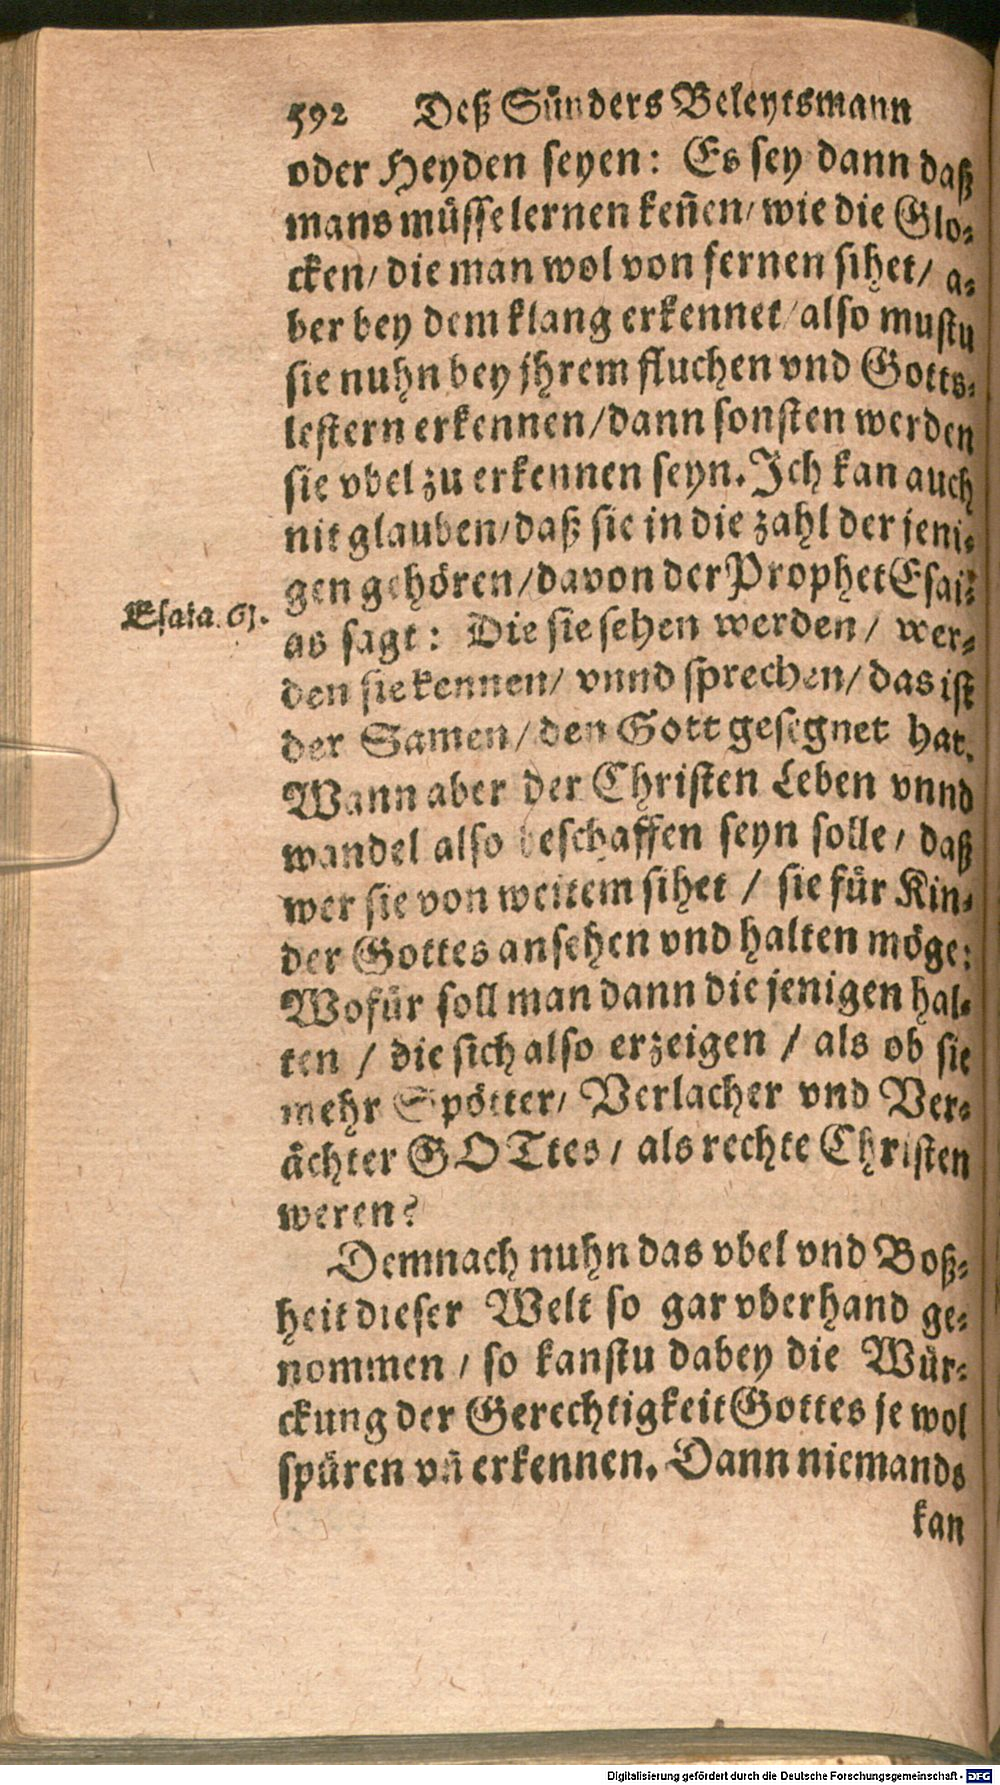 592 Deß Sünders Beleytsmann
oder Heyden seyen: Es sey dann daß
mans müsse lernen keñen/ wie die Glo-
cken/ die man wol von fernen sihet/ a-
ber bey dem klang erkennet/ also mustu
sie nuhn bey jhrem fluchen vnd Gotts-
lestern erkennen/ dann sonsten werden
sie vbel zu erkennen seyn. Ich kan auch
nit glauben/ daß sie in die zahl der jeni-
gen gehören/ davon der Prophet Esai-
Esaia. 61.
as sagt: Die sie sehen werden/ wer-
den sie kennen/ vnnd sprechen/ das ist
der Samen/ den Gott gesegnet hat.
Wann aber der Christen Leben vnnd
wandel also beschaffen seyn solle/ daß
wer sie von weitem sihet / sie für Kin-
der Gottes ansehen vnd halten möge:
Wofür soll man dann die jenigen hal-
ten / die sich also erzeigen / als ob sie
mehr Spötter/ Verlacher vnd Ver-
ächter GOTtes/ als rechte Christen
weren?
Demnach nuhn das vbel vnd Boß-
heit dieser Welt so gar vberhand ge-
nommen / so kanstu dabey die Wür-
ckung der Gerechtigkeit Gottes je wol
spüren vñ erkennen. Dann niemands
kan
Digitalisierung gefördert durch die Deutsche Forschungsgemeinschaft - DFG